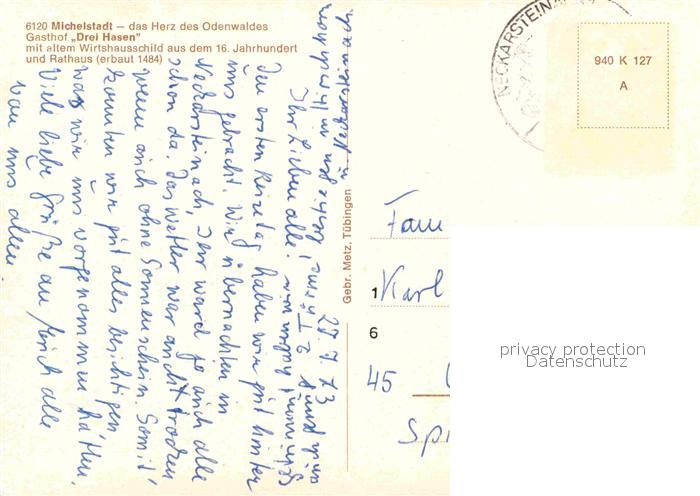 6120 Michelstadt – das Herz des Odenwaldes
Gasthof „Drei Hasen"
mit altem Wirtshausschild aus dem 16. Jahrhundert
und Rathaus (erbaut 1484)
NECKARSTEINA
940 K 127
A
Gebr. Metz, Tübingen
Ihr Lieben alle!
Den ersten Reisetag haben wir gut hinter
uns gebracht. Wir übernachten in
Neckarsteinach, Ihr ward ja auch alle
schon da. Das Wetter war auch trocken
wenn auch ohne Sonnenschein. Somit
konnten wir gut alles besichtigen
was wir uns vorgenommen hatten.
Viele liebe Grüße an Euch alle
von uns allen
in Neckarsteinach
Fam
1 Karl
6
45
Sp
privacy protection
Datenschutz